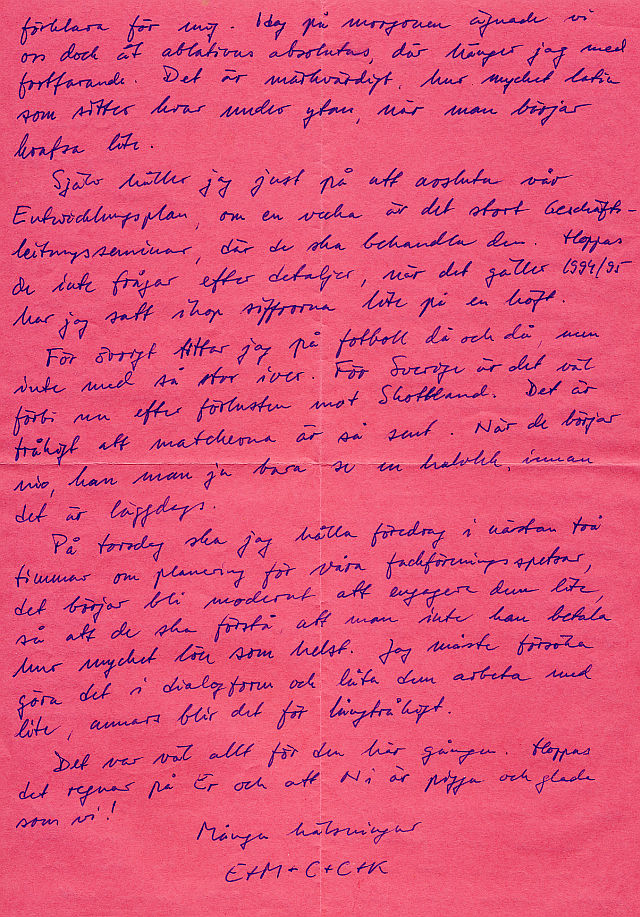 förklara för mig. Idag på morgonen ägnade vi
oss dock åt ablativus absolutus, där hänger jag med
fortfarande. Det är märkvärdigt, hur mycket latin
som sitter kvar under ytan, när man börjar
krafsa lite.
Själv håller jag just på att avsluta vår
Entwicklungsplan, om en vecka är det stort Geschäfts-
leitungsseminar, där de ska behandla den. Hoppas
de inte frågar efter detaljer, när det gäller 1994/95
har jag satt ihop siffrorna lite på en höft.
För övrigt tittar jag på fotboll då och då, men
inte med så stor iver. För Sverige är det väl
förbi nu efter förlusten mot Skottland. Det är
tråkigt att matcherna är så sent. När de börjar
nio, kan man ju bara se en halvlek, innan
det är läggdags.
På torsdag ska jag hålla föredrag i nästan två
timmar om planering för våra fackföreningsspetsar,
det börjar bli modernt att engagera dem lite,
så att de ska förstå, att man inte kan betala
hur mycket lön som helst. Jag måste försöka
göra det i dialogform och låta dem arbeta med
lite, annars blir det för långtråkigt.
Det var väl allt för den här gången. Hoppas
det regnar på Er och att Ni är pigga och glada
som vi!
Många hälsningar
E+M+C+C+K